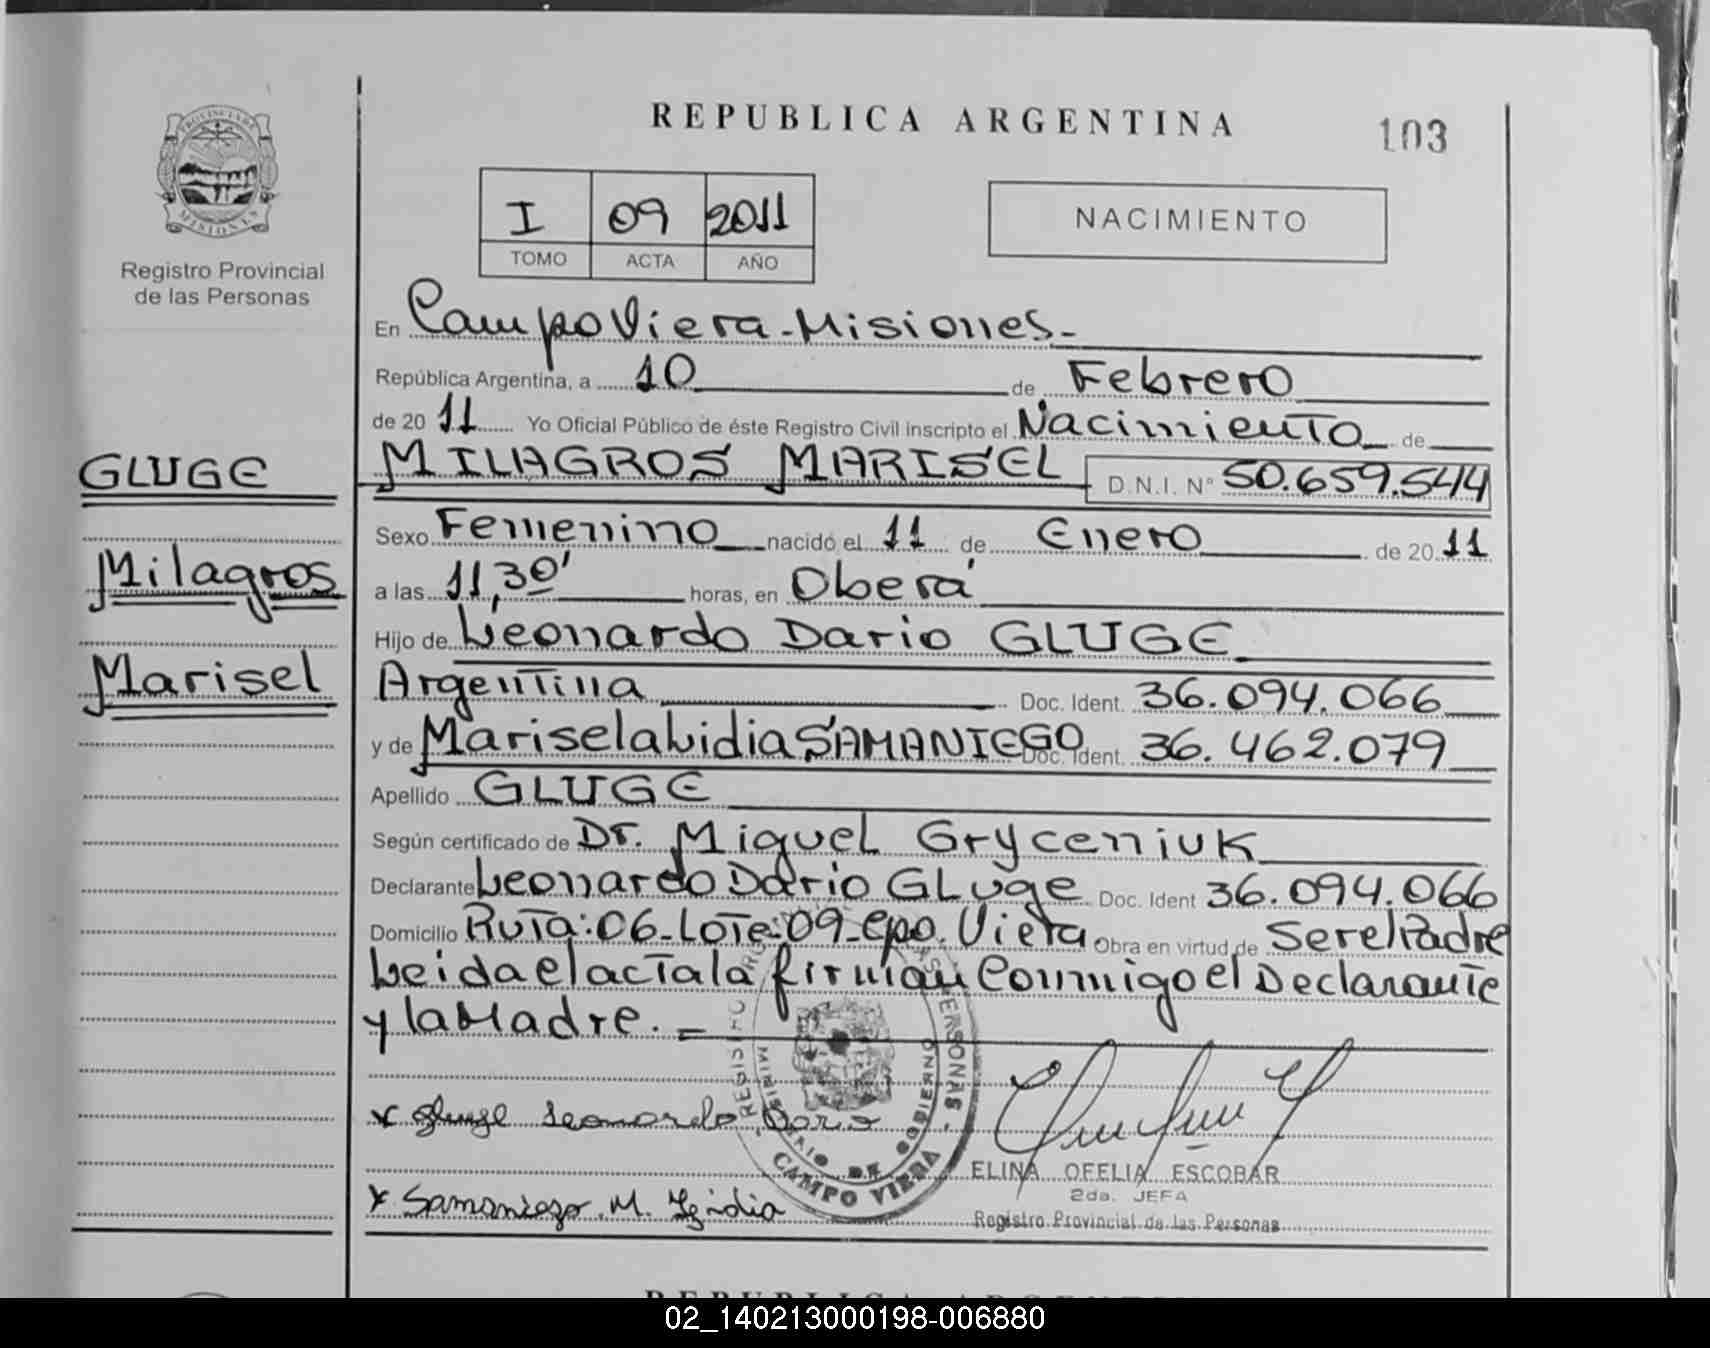 REPUBLICA ARGENTINA
103
PROVINCIA DE MISIONES
Registro Provincial
de las Personas
I 09 2011
TOMO ACTA AÑO
NACIMIENTO
En Campo Viera - Misiones -
República Argentina, a 10 de Febrero
de 20 11 Yo Oficial Público de éste Registro Civil inscripto el Nacimiento de
MILAGROS MARISEL D.N.I. N° 50.659.544
GLUGE
Milagros
Marisel
Sexo Femenino nacido el 11 de Enero de 20 11
a las 11,30' horas, en Oberá
Hijo de Leonardo Dario GLUGE
Argentina Doc. Ident. 36.094.066
y de Marisela Lidia SAMANIEGO Doc. Ident. 36.462.079
Apellido GLUGE
Según certificado de Dr. Miguel Gryceniuk
Declarante Leonardo Dario GLUGE Doc. Ident 36.094.066
Domicilio RUTA: 06 - LOTE: 09 - Cpo. Viera Obra en virtud de Ser el Padre
Leida el acta la firman Conmigo el Declarante
y la Madre. =
x Gluge Leonardo Dario
x Samaniego M. Lidia
REGISTRO PERSONAS
MINISTERIO DE GOBIERNO
CAMPO VIERA
ELINA OFELIA ESCOBAR
2da. JEFA
Registro Provincial de las Personas
02_140213000198-006880